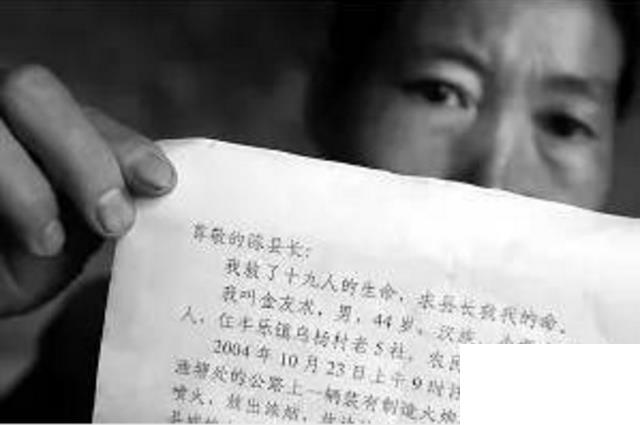 尊敬的陈县长:
我救了十九人的生命,求县长救我的命。
我叫金友术,男,44岁,汉族,
人,住丰乐镇乌杨村老5社,农民
2004年10月23日上午9时许
处的公路上一辆装有制造火炮
喷火,放出浓烟,